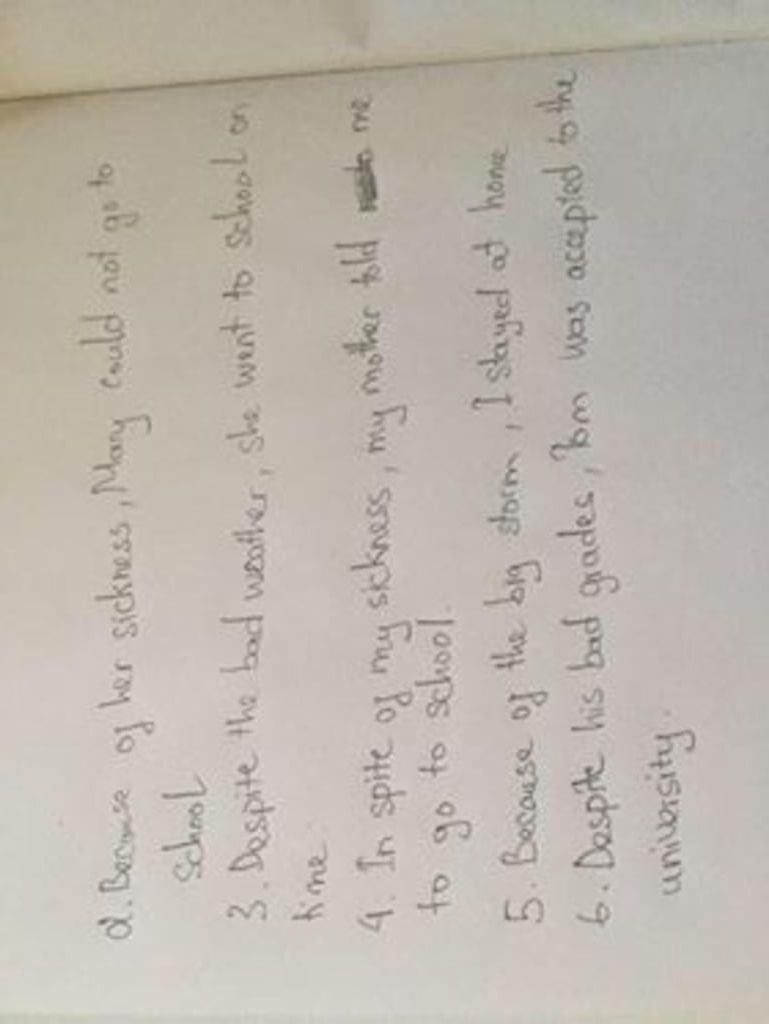 2. Because of her sickness, Mary could not go to
school
3. Despite the bad weather, she went to school on
time.
4. In spite of my sickness, my mother told me
to go to school.
5. Because of the big storm, I stayed at home
6. Despite his bad grades, Tom was accepted to the
university.